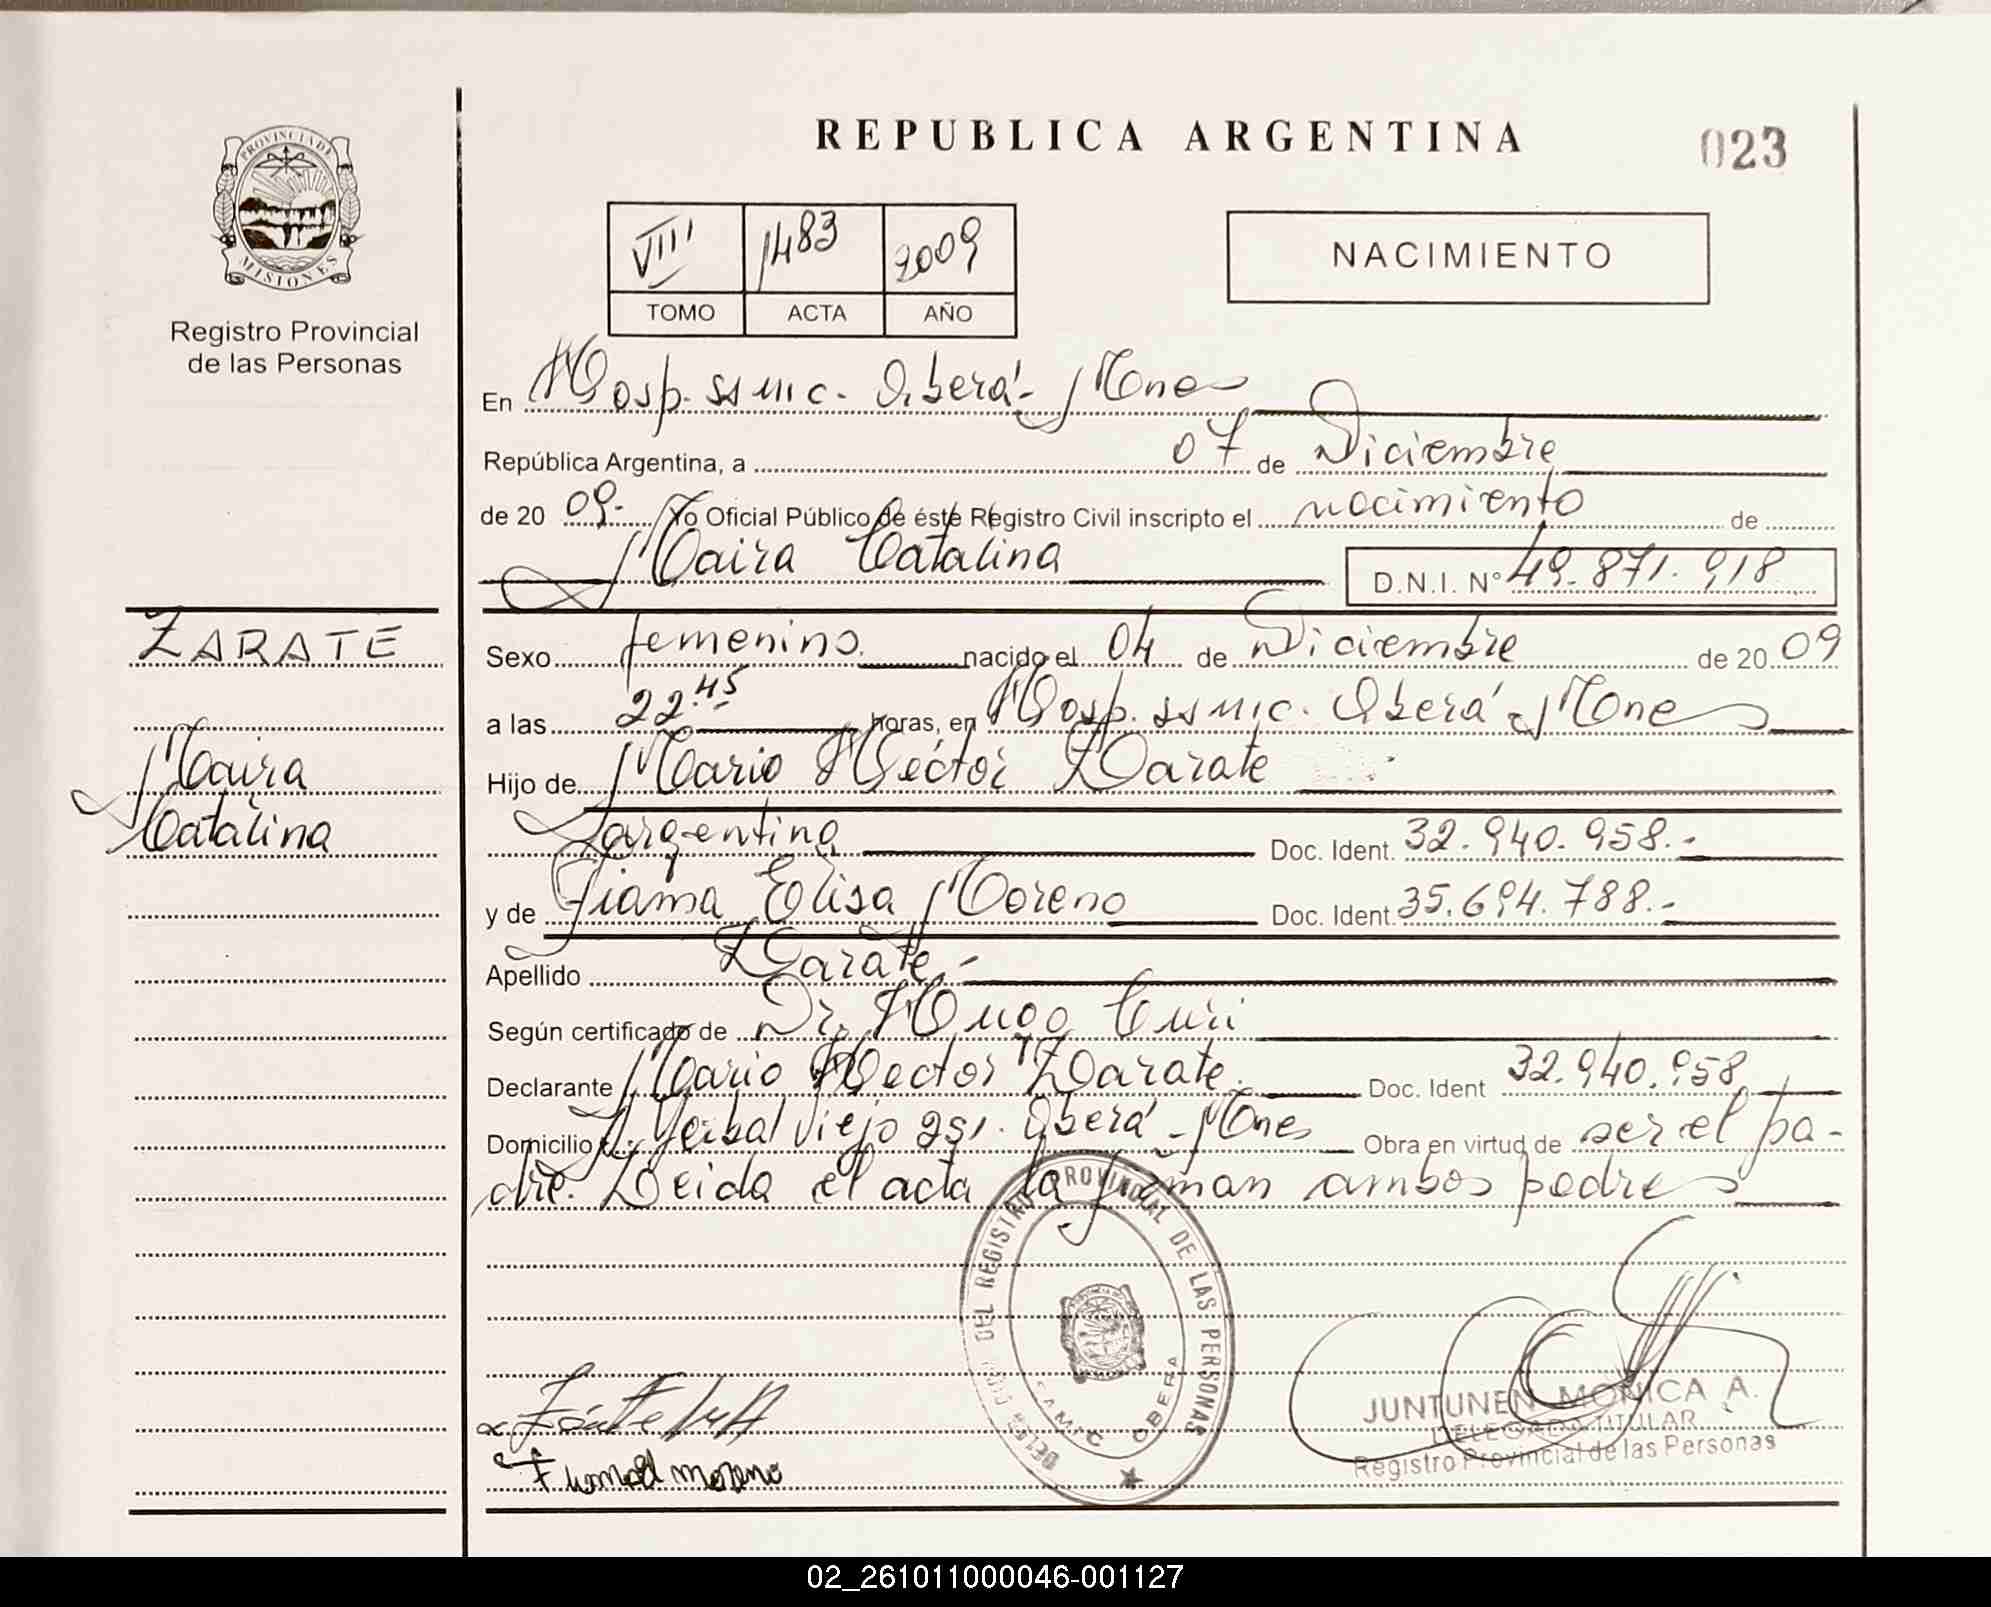 REPUBLICA ARGENTINA
023
PROVINCIA DE
MISIONES
Registro Provincial
de las Personas
VIII 1483 2009
TOMO ACTA AÑO
NACIMIENTO
En Hosp. ss mic. Oberá - Mnes
República Argentina, a 07 de Diciembre
de 20 09.- Yo Oficial Público de éste Registro Civil inscripto el nacimiento de
Maira Catalina D.N.I. N° 49.871.918
ZARATE
Maira
Catalina
Sexo femenino. nacido el 04 de Diciembre de 20 09
a las 22.45 horas, en Hosp. ss mic. Oberá - Mnes
Hijo de Mario Héctor Zarate
argentina Doc. Ident. 32.940.958.-
y de Fiama Elisa Moreno Doc. Ident. 35.694.788.-
Apellido Zarate.-
Según certificado de Dr. Hugo Curi
Declarante Mario Hector Zarate. Doc. Ident 32.940.958
Domicilio Yerbal Viejo 251. Oberá - Mnes Obra en virtud de ser el pa-
dre. Leida el acta la firman ambos padres
DEL REGISTRO PROVINCIAL DE LAS PERSONAS
SAMIC OBERA
JUNTUNEN MONICA A.
DELEGADA TITULAR
Registro Provincial de las Personas
moreno
02_261011000046-001127